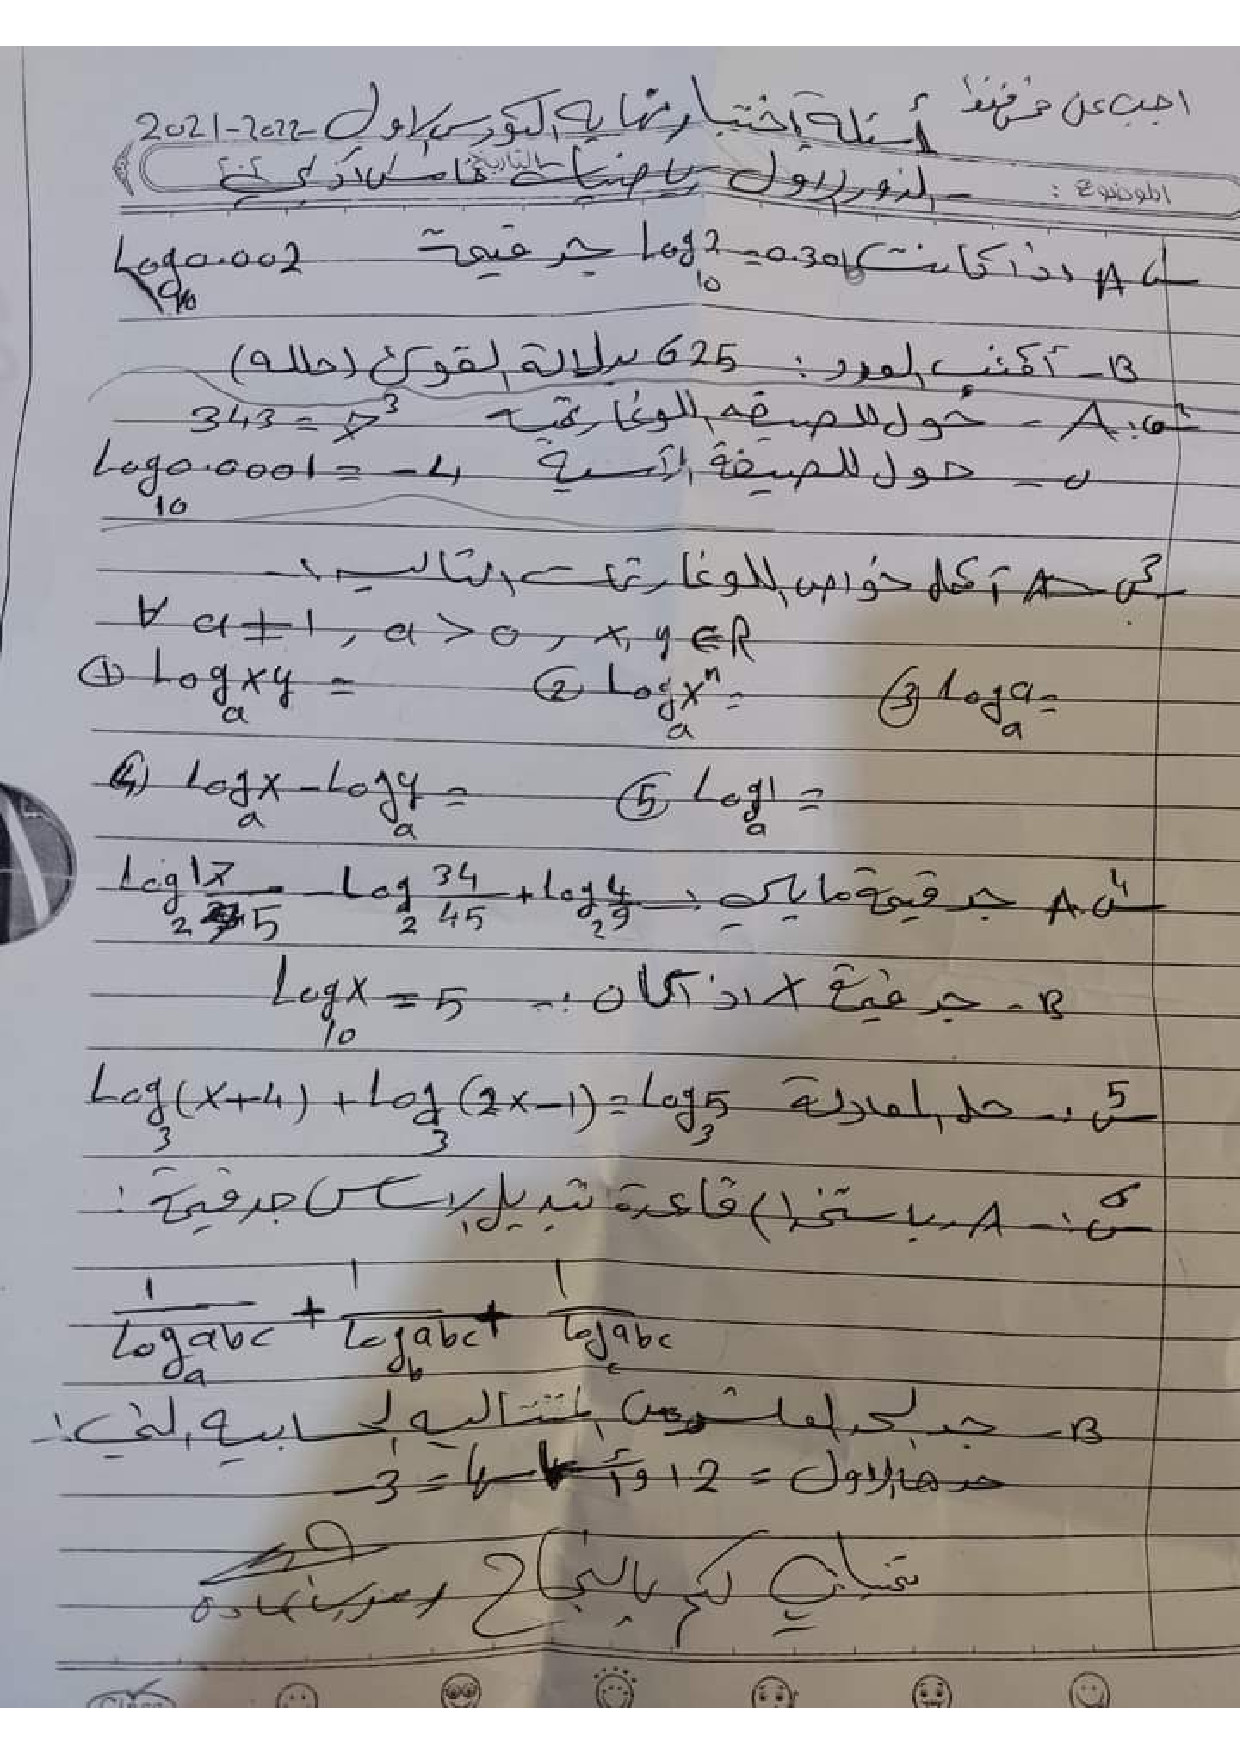 اجب عن خمس فقط
أسئلة اختبار نهاية الكورس الاول 2021-2022
الموضوع : التاريخ
الدور الاول رياضيات خامس أدبي
س١ A اذا كانت log₁₀2 = 0.301 جد قيمة Log₁₀0.002
B - أكتب العدد : 625 بدلالة القوى (حلله)
س٢: A - حول للصيغه اللوغارتميه 343 = 7³
ب - حول للصيغة الآسية Log₁₀0.0001 = -4
س٣ A أكمل خواص اللوغارتمات التاليه :-
∀ a ≠ 1 , a > 0 , x, y ∈ R
① Logₐxy = ② Logₐxⁿ = ③ Logₐa =
④ Logₐx - Logₐy = ⑤ Logₐ1 =
س٤ A. جد قيمة ما يلي : Log₂ 17/5 - Log₂ 34/45 + Log₂ 4/9
B - جد قيمة X اذا كان :- Log₁₀X = 5
س5 :- حل المعادلة Log₃(x+4) + Log₃(2x-1) = Log₃5
س٦ :- A - باستخدام قاعدة تبديل الاساس جد قيمة :
1/Logₐabc + 1/Log_b abc + 1/Log_c abc
B - جد الحد العشرون للمتتاليه الحسابيه التي :-
حدها الاول = 12 و = -3
تمنياتي لكم بالنجاح